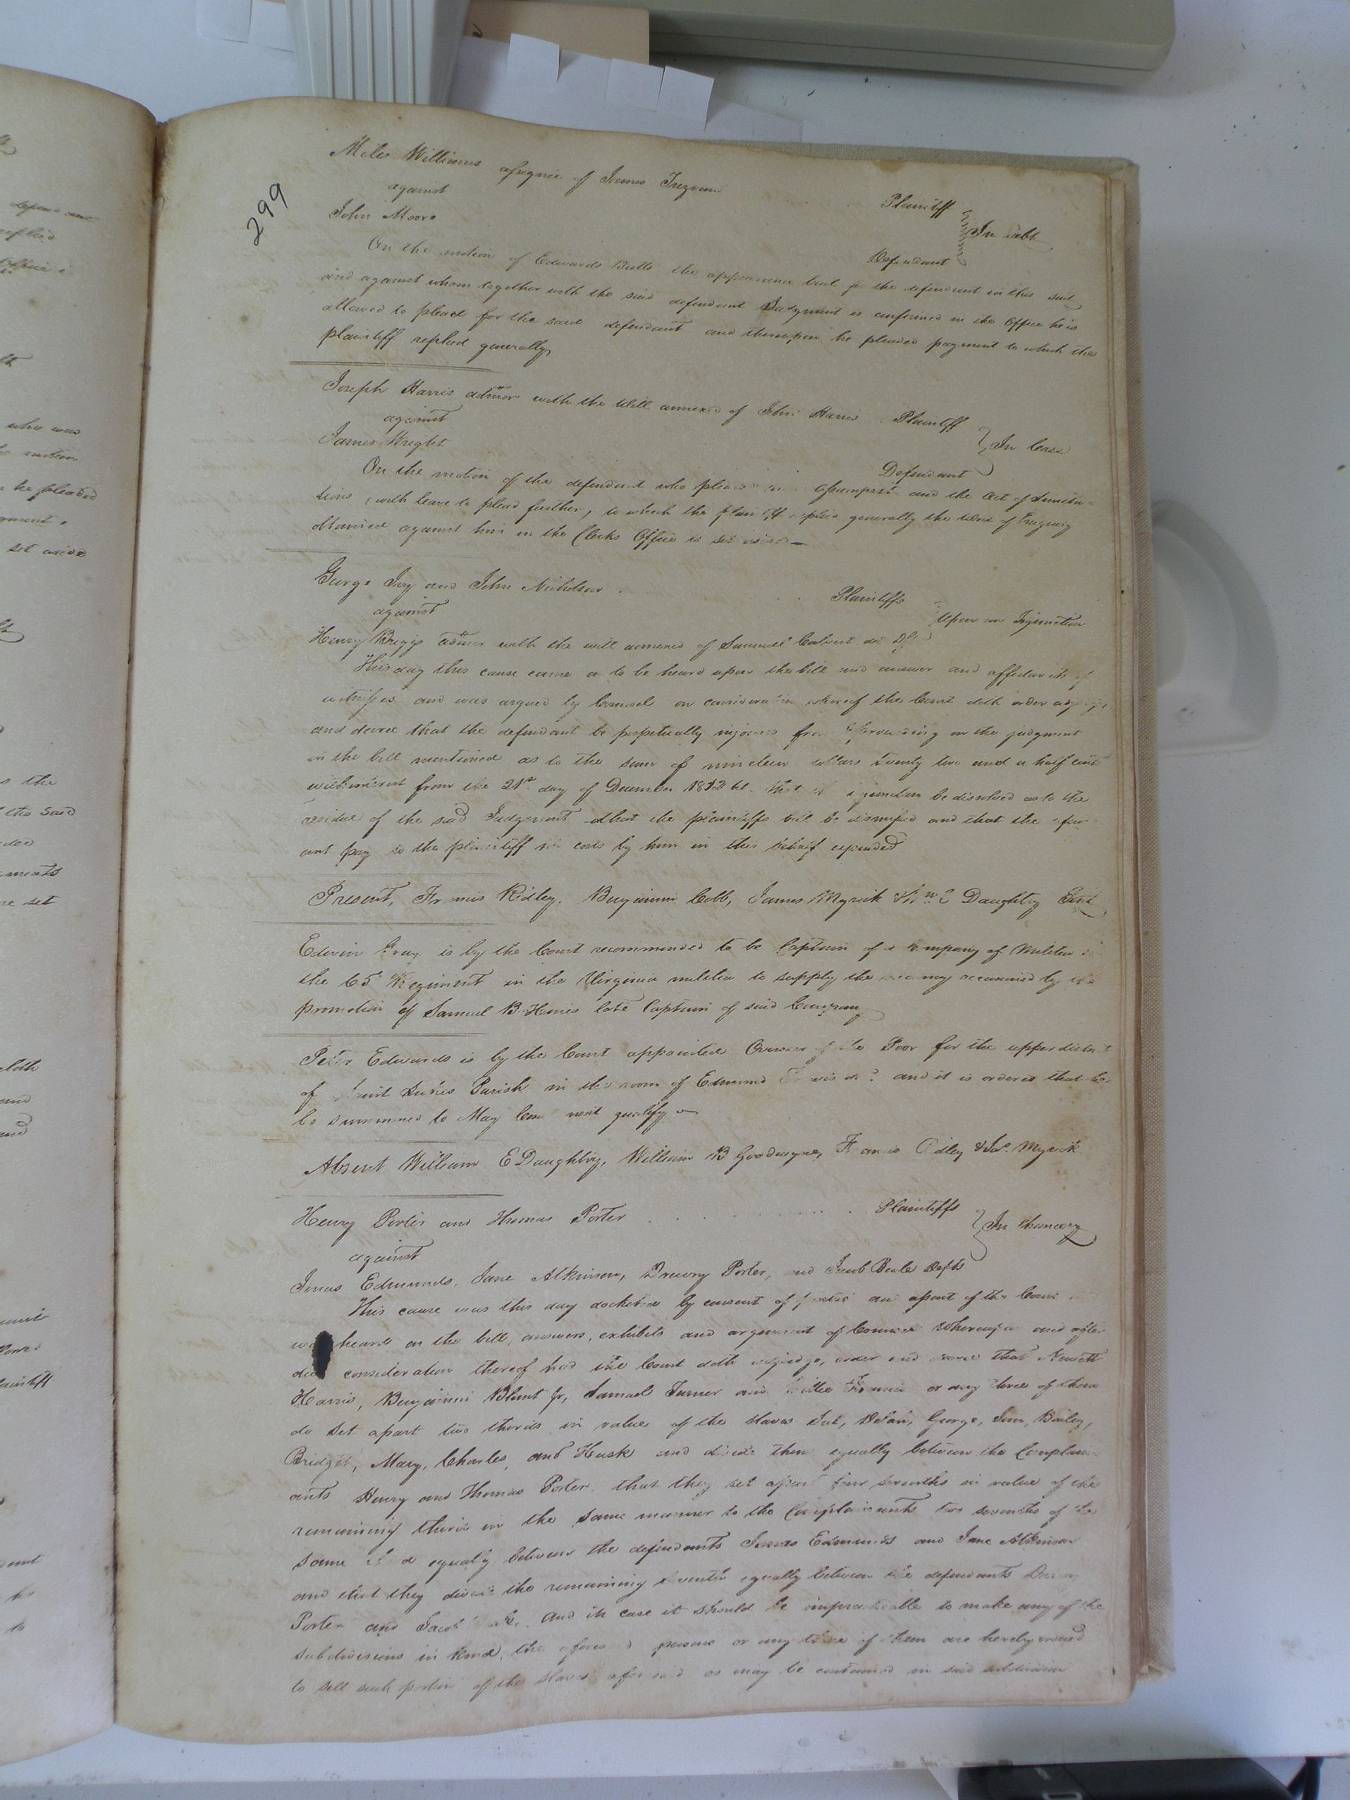 299
Miles Williams assignee of James Tregown Plaintiff
against In debt
John Moore Defendant
On the motion of Edwards Butts the appearance bail for the defendant in this suit
and against whom together with the said defendant Judgment is confirmed in the Office he is
allowed to plead for the said defendant and thereupon he pleaded payment to which the
plaintiff replied generally
Joseph Harris admor with the Will annexed of John Harris Plaintiff
against In Case
James Wright Defendant
On the motion of the defendant who pleads non Assumpsit and the Act of Limita-
tions, with leave to plead further, to which the plaintiff replies generally the Writ of Enquiry
obtained against him in the Clerks Office is set aside
George Ivy and John Nicholson Plaintiffs
against Upon an Injunction
Henry Briggs admr with the will annexed of Samuel Calvert dec Dft
This day this cause came on to be heard upon the bill and answer and affidavits of
witnesses and was argued by Counsel on consideration whereof the Court doth order adjudge
and decree that the defendant be perpetually injoined from proceeding on the judgment
in the bill mentioned as to the sum of nineteen dollars twenty two and a half cents
with interest from the 21st day of December that the injunction be dissolved as to the
residue of the said Judgment that the plaintiffs bill be dismissed and that the
pay to the plaintiff his costs by him in this behalf expended
Present, Francis Ridley, Benjamin Cobb, James Myrick & Wm E Daughtry Gent
Edwin Gray is by the Court recommended to be Captain of a Company of Militia in
the 65 Regiment in the Virginia militia to supply the vacancy occasioned by the
promotion of Samuel B Hines late Captain of said Company
Peter Edwards is by the Court appointed Overseer of the Poor for the upper district
of Saint Lukes Parish in the room of Edmund and it is ordered that he
be summoned to May Court next qualify
Absent William E Daughtry, William B Goodwyn, Francis Ridley & Jas. Myrick
Henry Porter and Thomas Porter Plaintiffs
against In Chancery
Jonas Edmunds, Jane Atkinson, Drewry Porter, and Jacob Beale Defts
This cause was this day docketed by consent of parties and apart of the Court
was heard on the bill, answers, exhibits and argument of Counsel Whereupon and after
due consideration thereof had the Court doth adjudge, order and decree that Newitt
Harris, Benjamin Blunt Jr, Samuel Turner and Francis or any three of them
do set apart two thirds in value of the slaves Sal, George, Sam, Bailey,
Bridget, Mary, Charles, and Husk and divide them equally between the Complain-
ants Henry and Thomas Porter, that they set apart four sevenths in value of the
remaining third in the same manner to the Complainants two sevenths of the
same equally between the defendants Jonas Edmunds and Jane Atkinson
and that they divide the remaining seventh equally between the defendants Drewry
Porter and Jacob Beale. And in case it should be impracticable to make any of the
subdivisions in kind, the aforesaid persons or any three of them are hereby
to sell such portion of the slaves aforesaid as may be contained in said subdivision